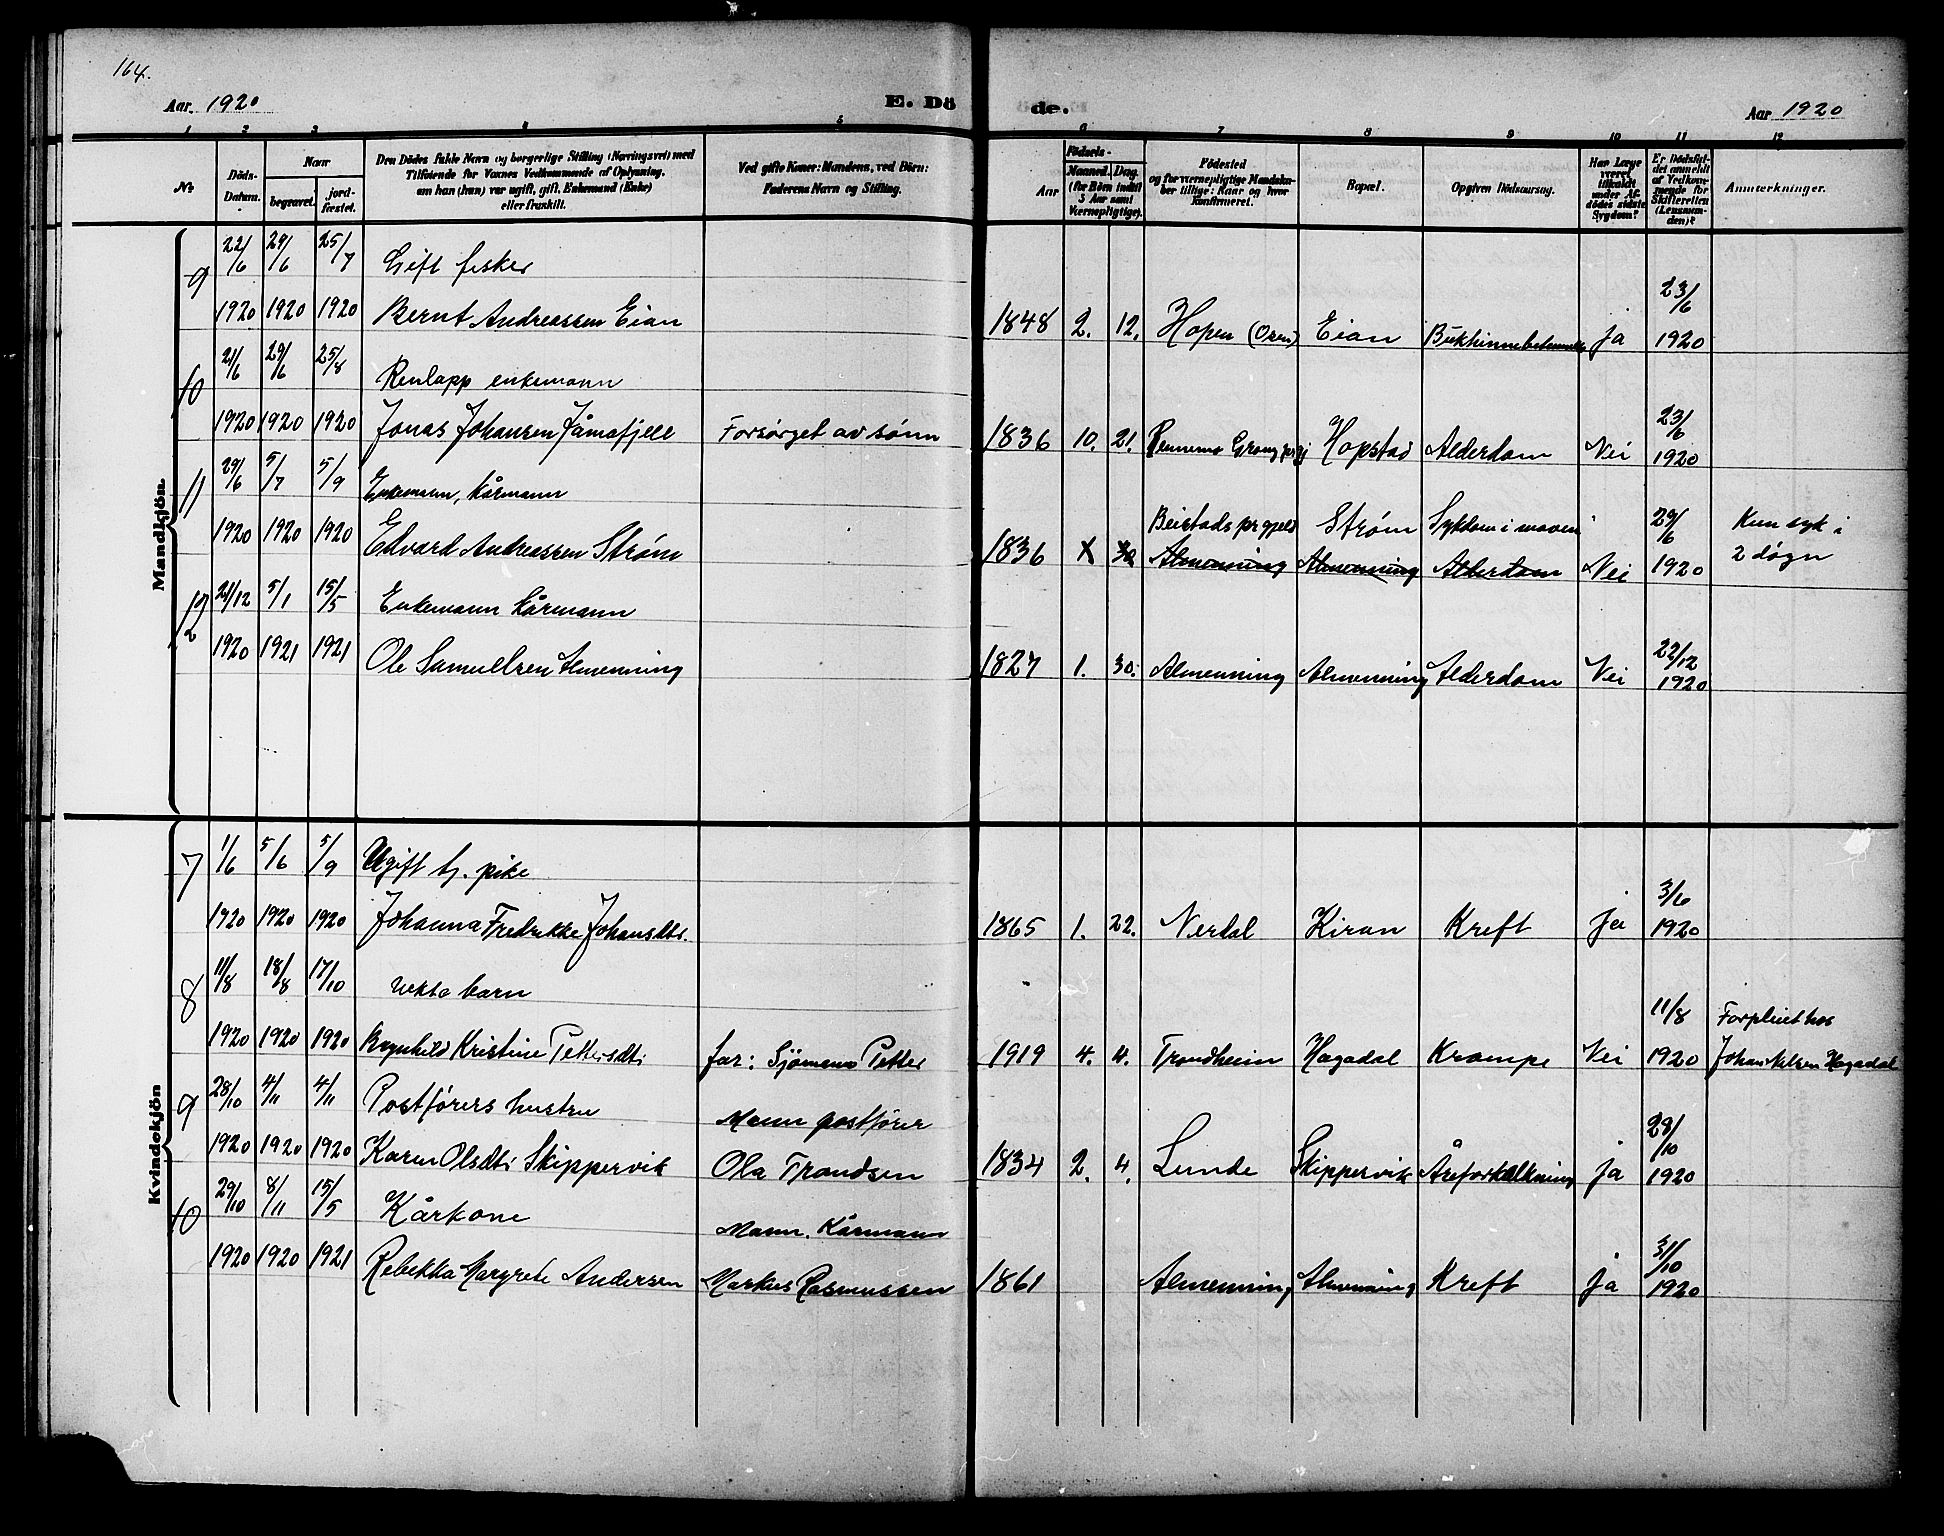 164.
Aar 1920
E. Dö
de.
Aar 1920
1 2 3 4 5 6 7 8 9 10 11 12
No
Döds-
Datum.
Naar
begravet.
jord-
fæstet.
Den Dödes fulde Navn og borgerlige Stilling (Næringsvei) med
Tilføiende for Voxnes Vedkommende af Oplysning,
om han (hun) var ugift, gift, Enkemand (Enke)
eller fraskilt.
Ved gifte Koner: Mandens, ved Börn:
Faderens Navn og Stilling.
Födsels-
Aar
Maaned.
Dag.
(for Börn indtil
5 Aar samt
Værnepligtige).
Födested
og for værnepligtige Mandskaber
tillige: Naar og hvor
konfirmeret.
Bopæl.
Opgiven Dödsaarsag.
Har Læge
været
tilkaldt
under Afdödes
sidste
Sygdom?
Er Dödsfaldet
anmeldt
af Vedkommende
for
Skifteretten
(Lensmanden)?
Anmærkninger.
Mandkjön.
9 22/6 29/6 25/7 Gift fisker
1920 1920 1920 Bernt Andreassen Eian 1848 2. 12. Hopen Eian ja 23/6 1920
10 21/6 29/6 25/8 Renlapp enkemann
1920 1920 1920 Jonas Johansen Jåmafjell Forsørget av sønn 1836 10. 21. Hopstad Alderdom Nei 23/6 1920
11 29/6 5/7 5/9 Enkemann, kårmann
1920 1920 1920 Edvard Andreassen Strøm Beistads prgjeld Strøm Sykdom i maven 29/6 Kun syk i
1836 Almenning Almenning Alderdom Nei 1920 2 døgn
12 21/12 5/1 15/5 Enkemann kårmann
1920 1921 1921 Ole Samuelsen Almenning 1827 1. 30. Almenning Almenning Alderdom Nei 22/12 1920
Kvindekjön
7 1/6 5/6 5/9 Ugift tj. pike
1920 1920 1920 Johanna Fredrikke Johansdtr. 1865 1. 22. Nerdal Kiran Kreft ja 3/6 1920
8 11/8 18/8 17/10 uekte barn
1920 1920 1920 Ragnhild Kristine Pettersdtr far: Sjömann Petter 1919 4. 4. Trondheim Hagadal Krampe Nei 11/8 1920 Forpleiet hos
Johan Nilsen Hagadal
9 28/10 4/11 4/11 Postførers hustru Mann postfører
1920 1920 1920 Karen Olsdtr Skippervik Ola Trondsen 1834 2. 4. Lunde Skippervik Åreforkalkning ja 29/10 1920
10 29/10 8/11 15/5 Kårkone Mann. Kårmann
1920 1920 1921 Rebekka Margrete Andersen Markus Rasmussen 1861 Almenning Almenning Kreft ja 31/10 1920